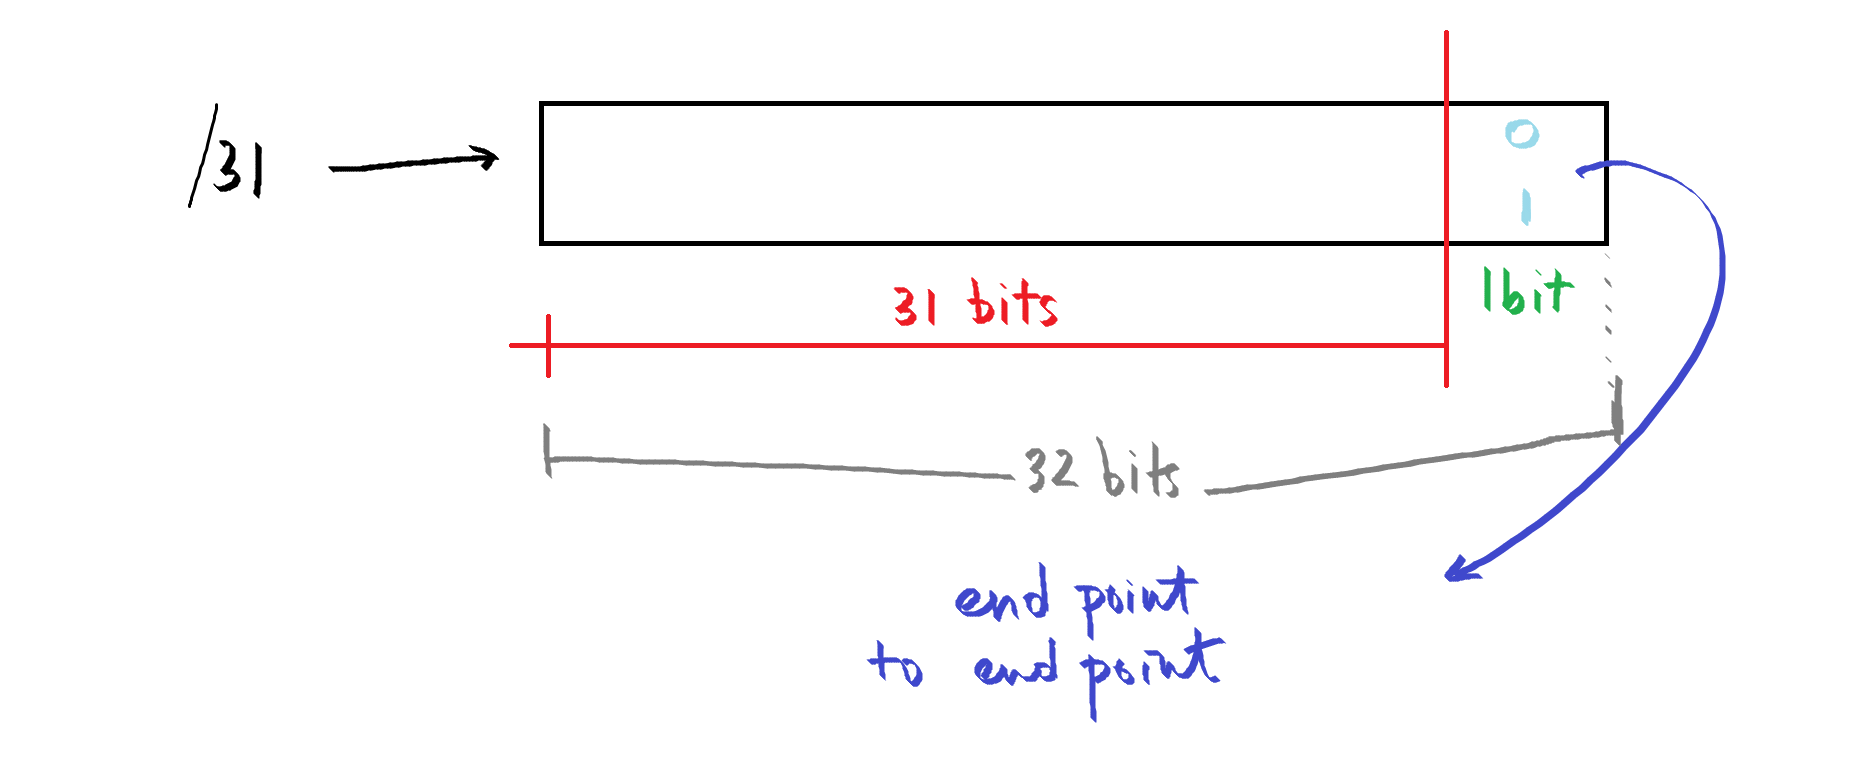 /31
0
1
31 bits
1bit
32 bits
end point
to end point